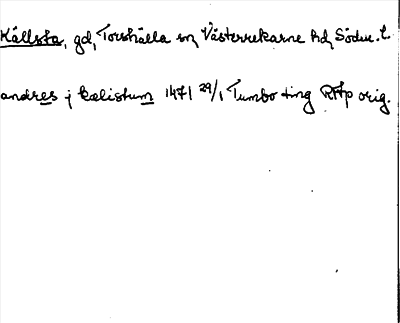 Källsta, gd, Torshälla sn, Västerrekarne hd, Söderm. L.
andres j kælistum 1471 29/1 Tumbo ting RAp orig.